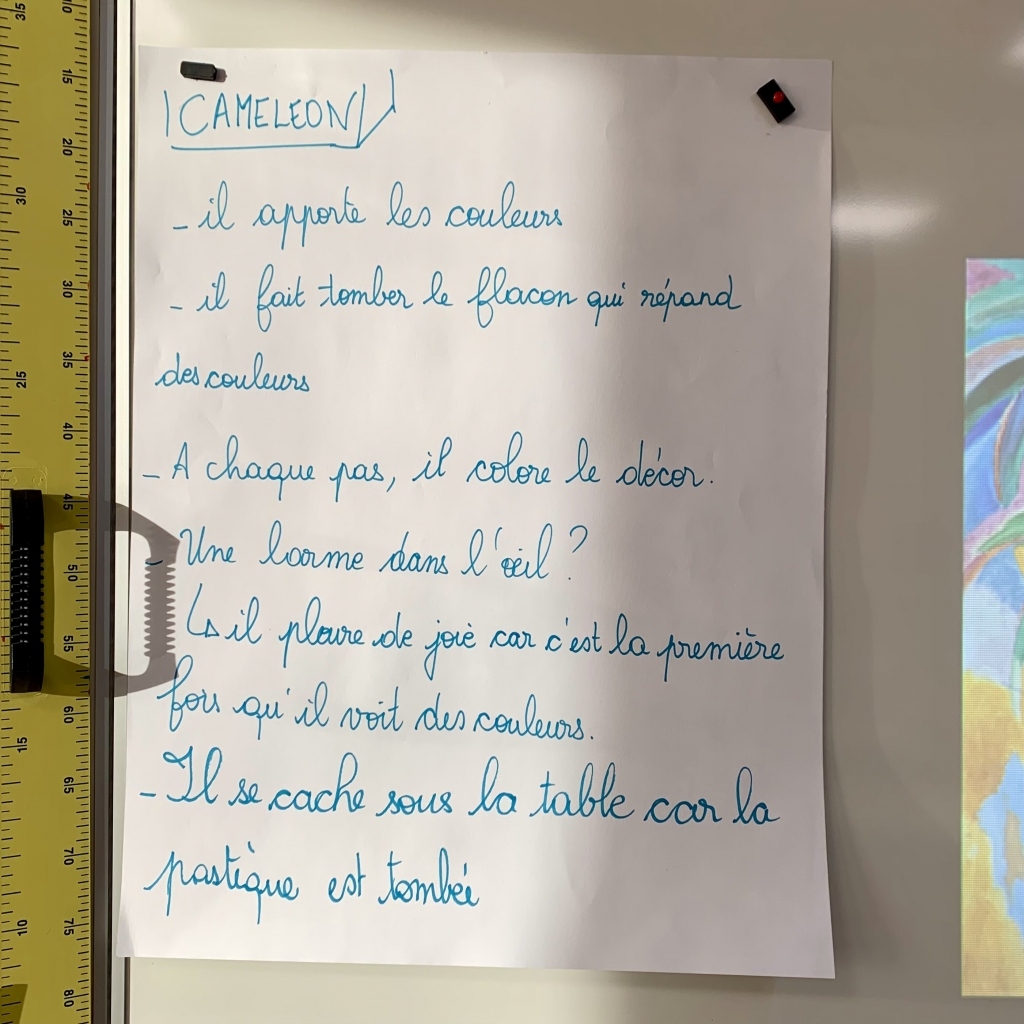 CAMELEON
- il apporte les couleurs
- il fait tomber le flacon qui répand
des couleurs
- A chaque pas, il colore le décor.
- Une larme dans l'œil ?
↳ il pleure de joie car c'est la première
fois qu'il voit des couleurs.
- Il se cache sous la table car la
pastèque est tombée
35
30
25
15
10
10
15
20
25
30
35
40
45
50
55
60
65
70
75
80